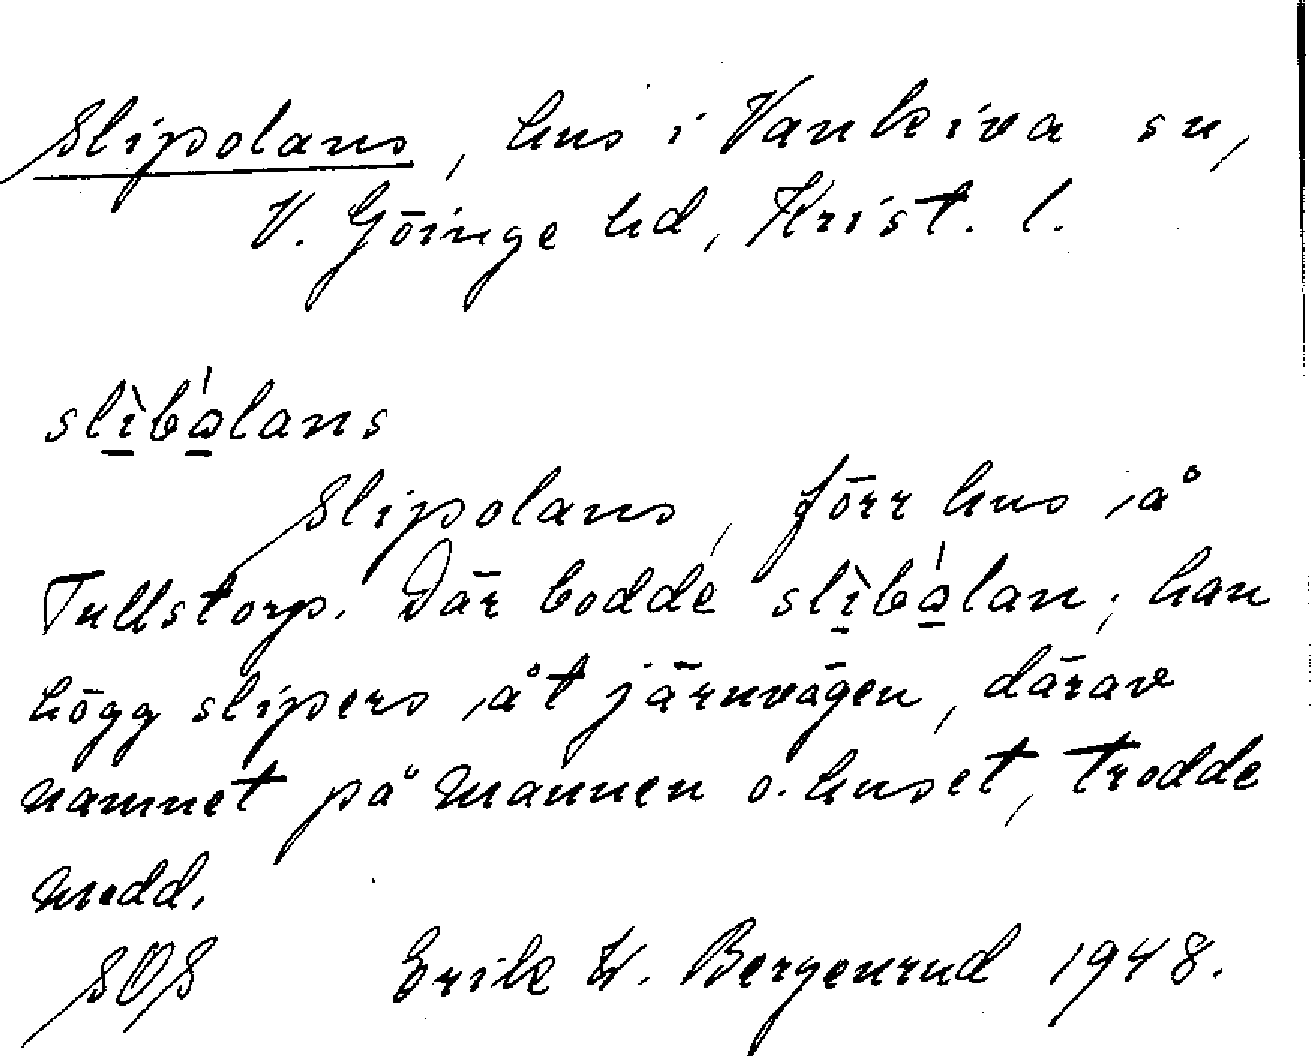 Slipolans, hus i Vankiva sn,
V. Göinge hd, Krist. l.
slìbálans
Slipolans, förr hus på
Tullstorp. Där bodde slìbálan; han
högg slipers åt järnvägen, därav
namnet på mannen o. huset, trodde
medd.
SOS Erik W. Bergenrud 1948.